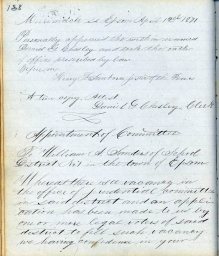 138
Merrimack ss Epsom April 12th 1871
Personally appeared the within named
Daniel G Chesley and took the oath
of office prescribed by law
Before me
Henry Justice of the Peace
A true copy Attest
Daniel G Chesley Clerk
Appointment of Committee
To William A of School
District No 7 in the town of Epsom
Whereas there is a vacancy in
the office of Prudential Committee
in said district and an applic-
ation has been made to us by
one or more legal voters of said
district to fill such vacancy
we having confidence in your